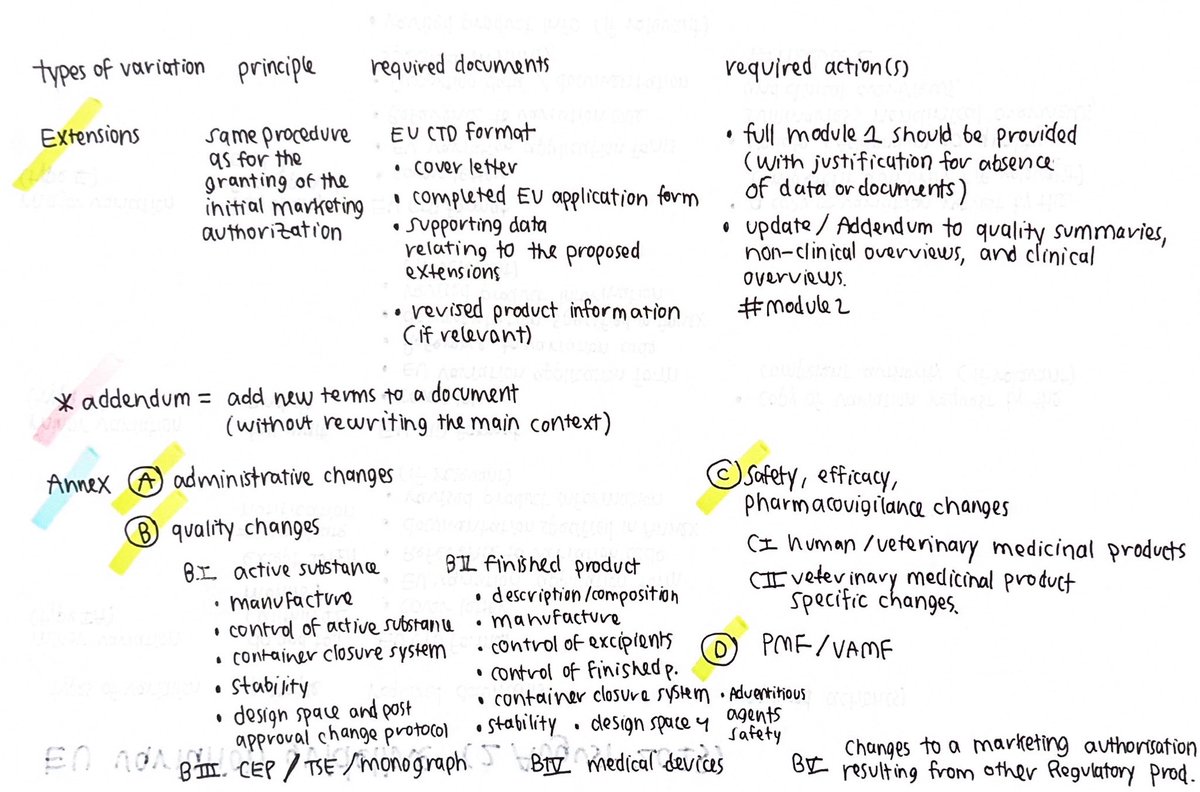 types of variation principle required documents required action(s)
Extensions
same procedure
as for the
granting of the
initial marketing
authorization
EU CTD format
• cover letter
• completed EU application form
• supporting data
relating to the proposed
extensions
• revised product information
(if relevant)
• full module 1 should be provided
(with justification for absence
of data or documents)
• update / Addendum to quality summaries,
non-clinical overviews, and clinical
overviews.
#module 2
* addendum = add new terms to a document
(without rewriting the main context)
Annex A administrative changes
B quality changes
B I active substance
• manufacture
• control of active substance
• container closure system
• stability
• design space and post
approval change protocol
B II finished product
• description/composition
• manufacture
• control of excipients
• control of finished p.
• container closure system
• stability • design space
• Adventitious
agents
safety
B III CEP / TSE / monograph
B IV medical devices
B V Changes to a marketing authorisation
resulting from other Regulatory prod.
C safety, efficacy,
pharmacovigilance changes
C I human/veterinary medicinal products
C II veterinary medicinal product
specific changes.
D PMF/VAMF